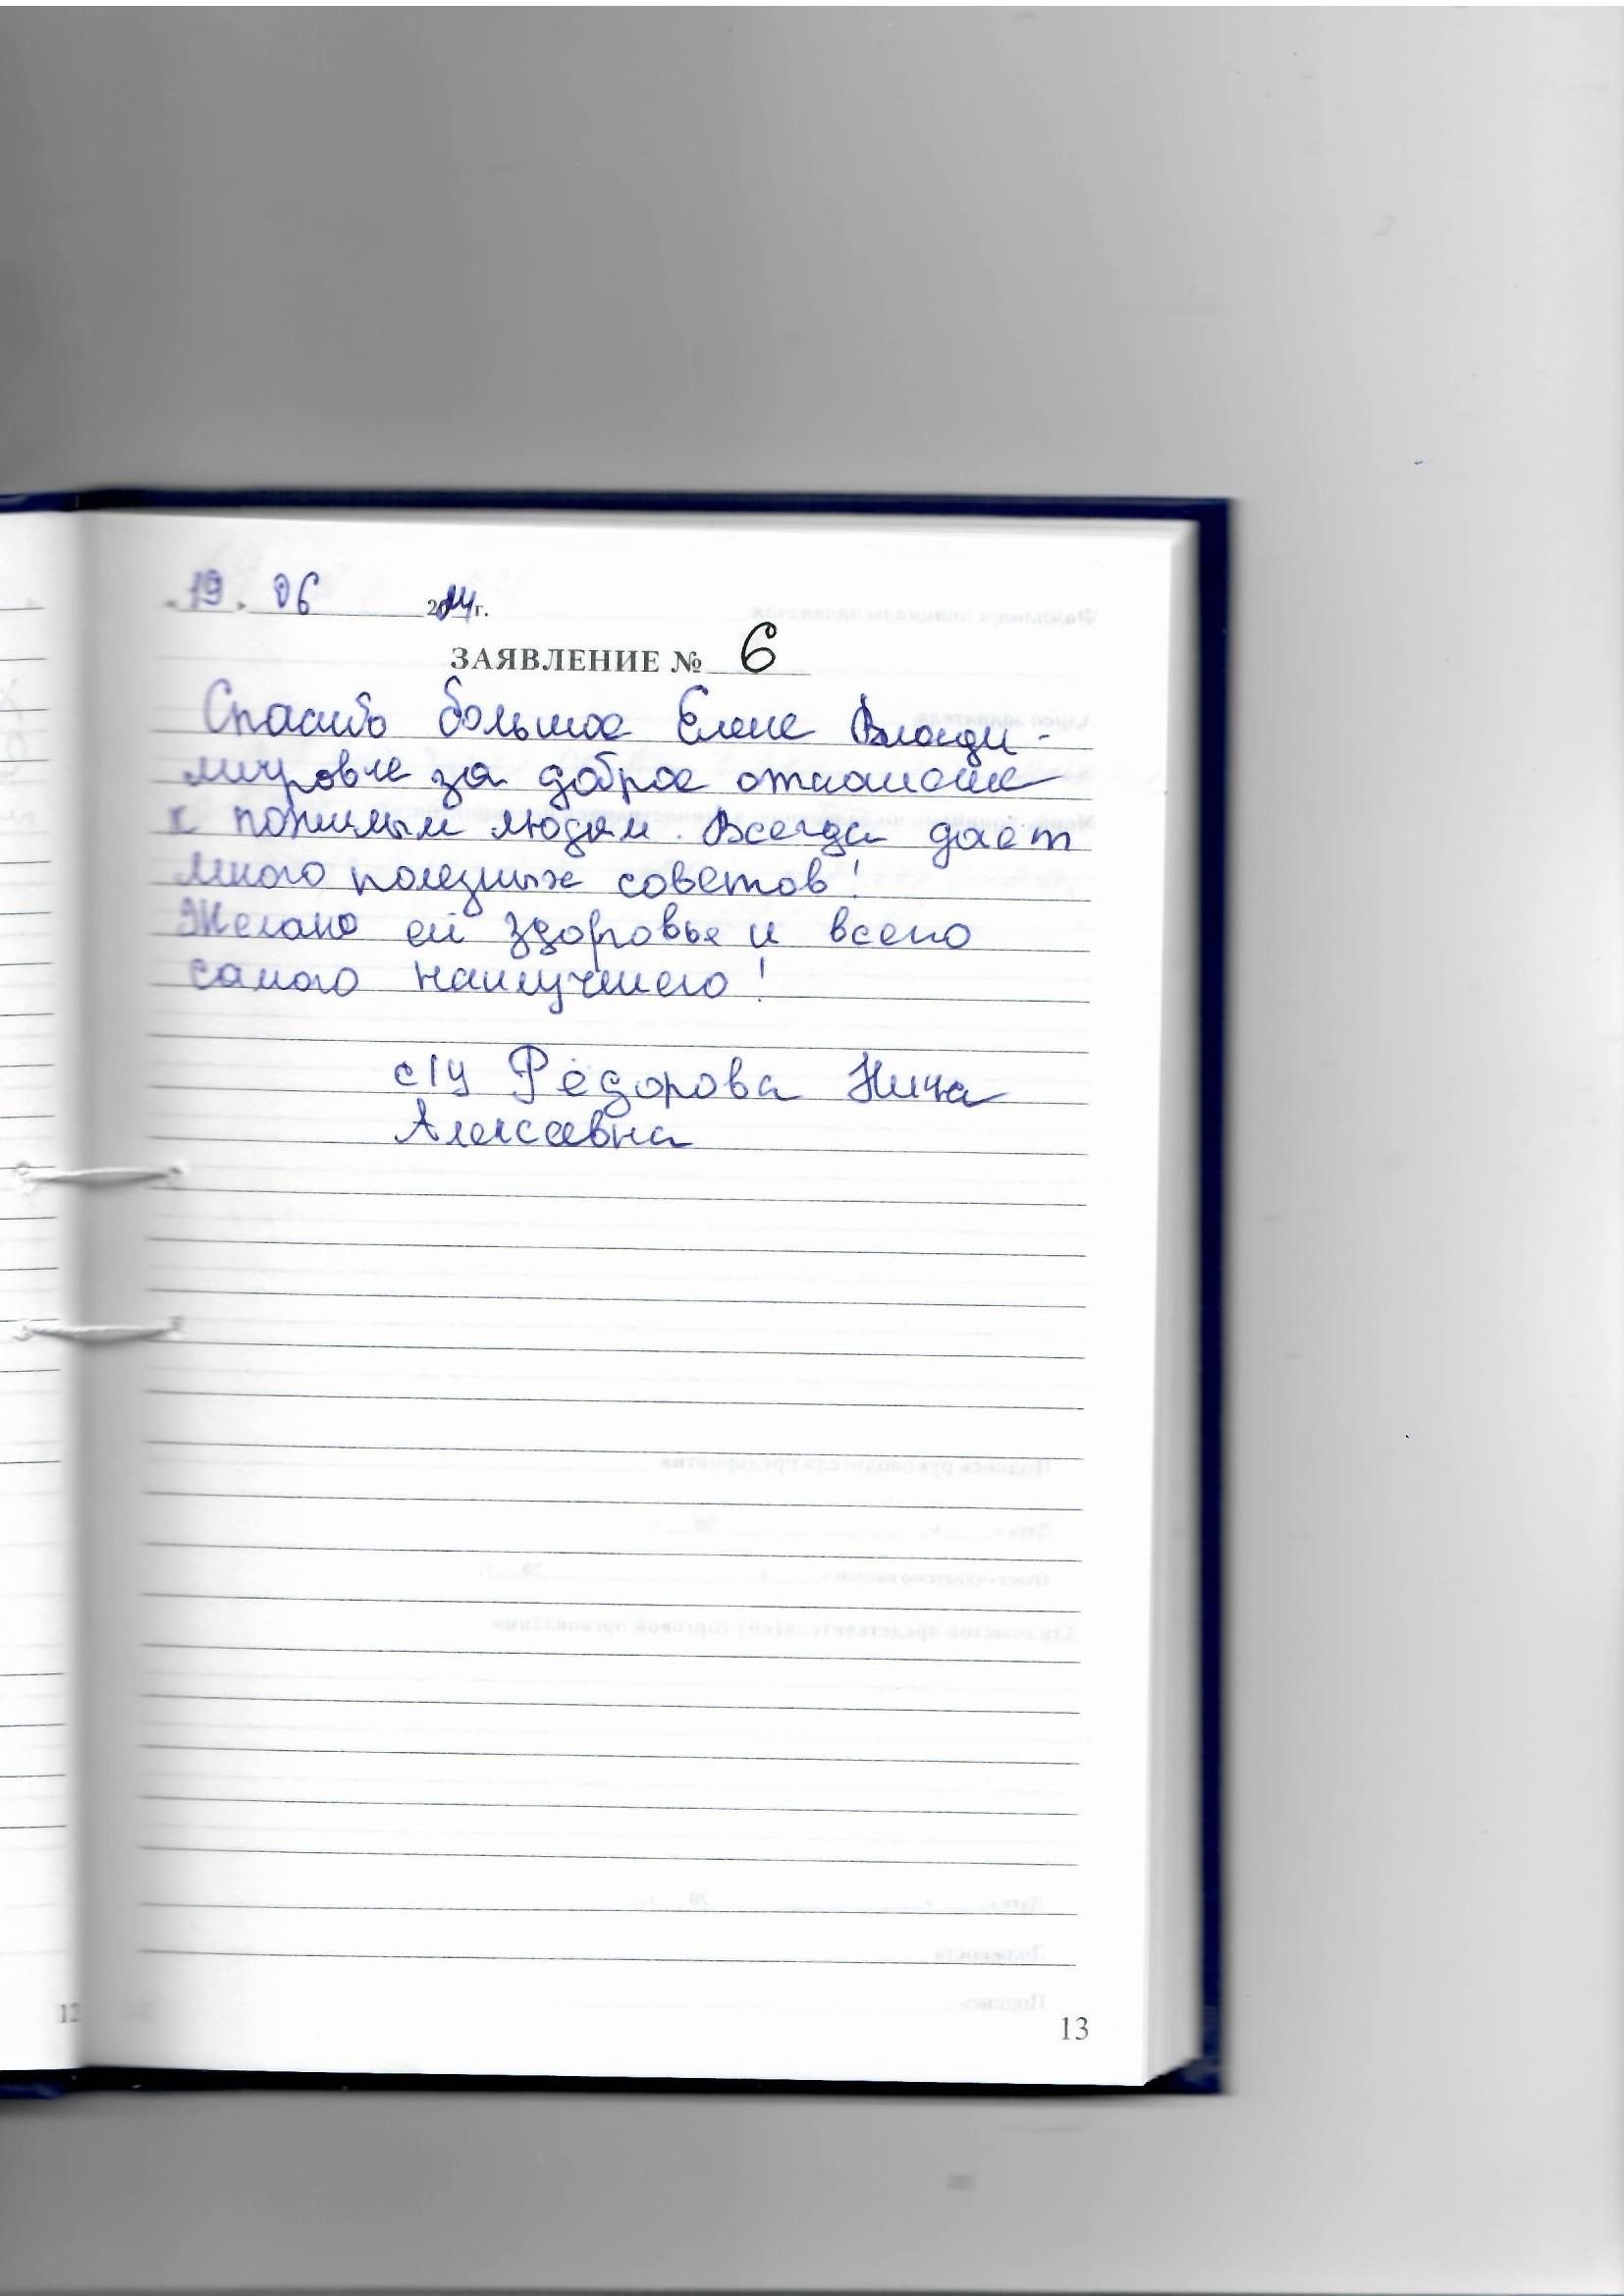 « 19 » 06 2024 г.
ЗАЯВЛЕНИЕ № 6
Спасибо большое Елене Влади-
мировне за доброе отношение
к пожилым людям. Всегда дает
много полезных советов!
Желаю ей здоровья и всего
самого наилучшего!
с/у Фёдорова Нина
Алексеевна
12
13